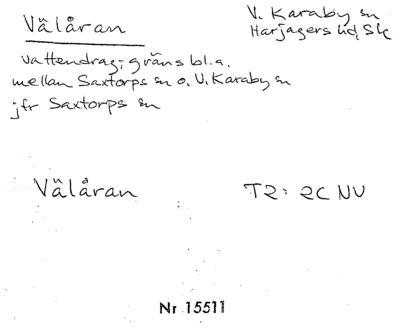 Välåran
V. Karaby sn
Harjagers hd, Sk
vattendrag; gräns bl.a.
mellan Saxtorps sn o. V. Karaby sn
jfr Saxtorps sn
Välåran
T2: 2C NV
Nr 15511